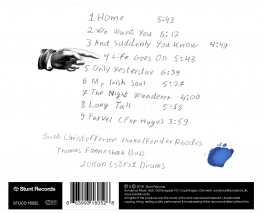 1 Home 5:43
2 We Want You 6:12
3 And Suddenly You Know 4:49
4 Life Goes On 5:43
5 Only Yesterday 6:39
6 My Irish Soul 5:27
7 The Night Wanderer 4:00
8 Long Tall 5:58
9 Farvel (For Hugo) 3:59
Jacob Christoffersen Piano/Fender Rhodes
Thomas Fonnesbæk Bass
Zoltan Csörsz Drums
Stunt Records
STUCD 16052